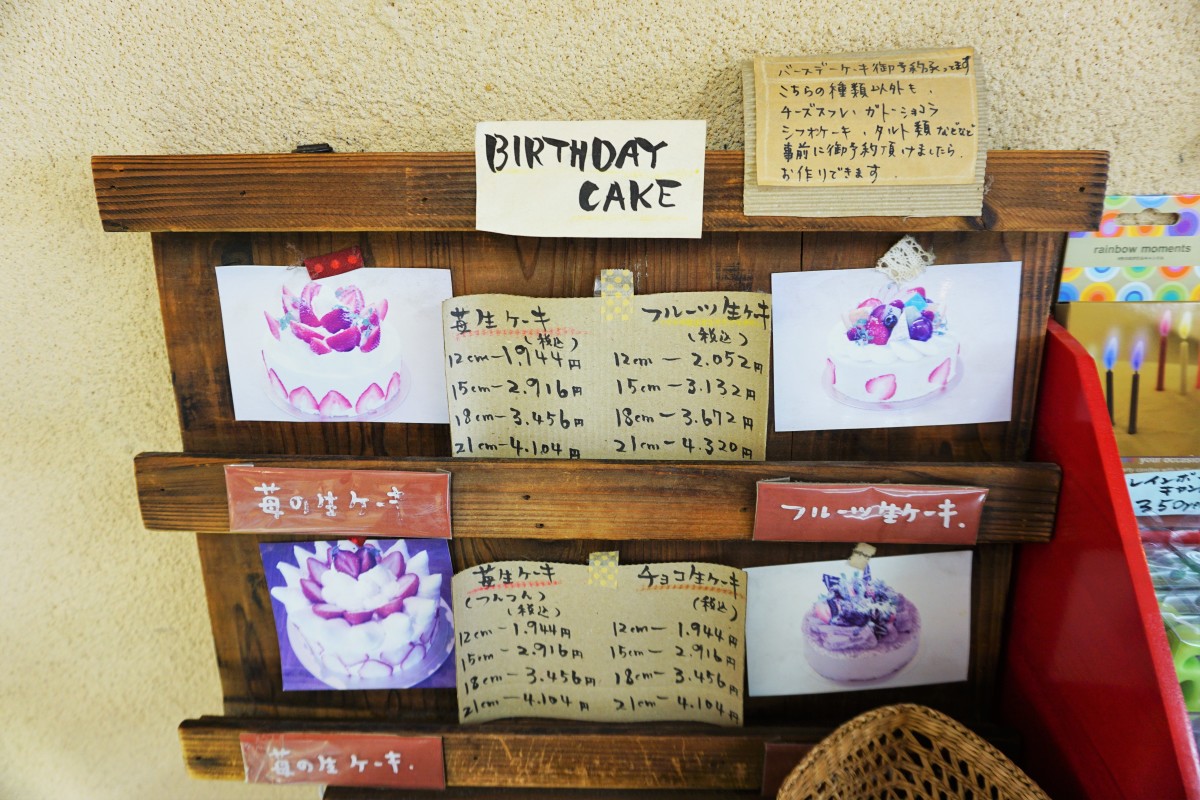 BIRTHDAY
CAKE
バースデーケーキ御予約承ってます
こちらの種類以外も、
チーズスフレ ガトーショコラ
シフォンケーキ、タルト類などなど
事前に御予約頂けましたら、
お作りできます。
苺生ケーキ
(税込)
12cm−1.944円
15cm−2.916円
18cm−3.456円
21cm−4.104円
フルーツ生ケーキ
(税込)
12cm−2.052円
15cm−3.132円
18cm−3.672円
21cm−4.320円
苺の生ケーキ
フルーツ生ケーキ.
苺生ケーキ
(つんつん)
(税込)
12cm−1.944円
15cm−2.916円
18cm−3.456円
21cm−4.104円
チョコ生ケーキ
(税込)
12cm−1.944円
15cm−2.916円
18cm−3.456円
21cm−4.104円
苺の生ケーキ.
rainbow moments
レインボー
キャン
350